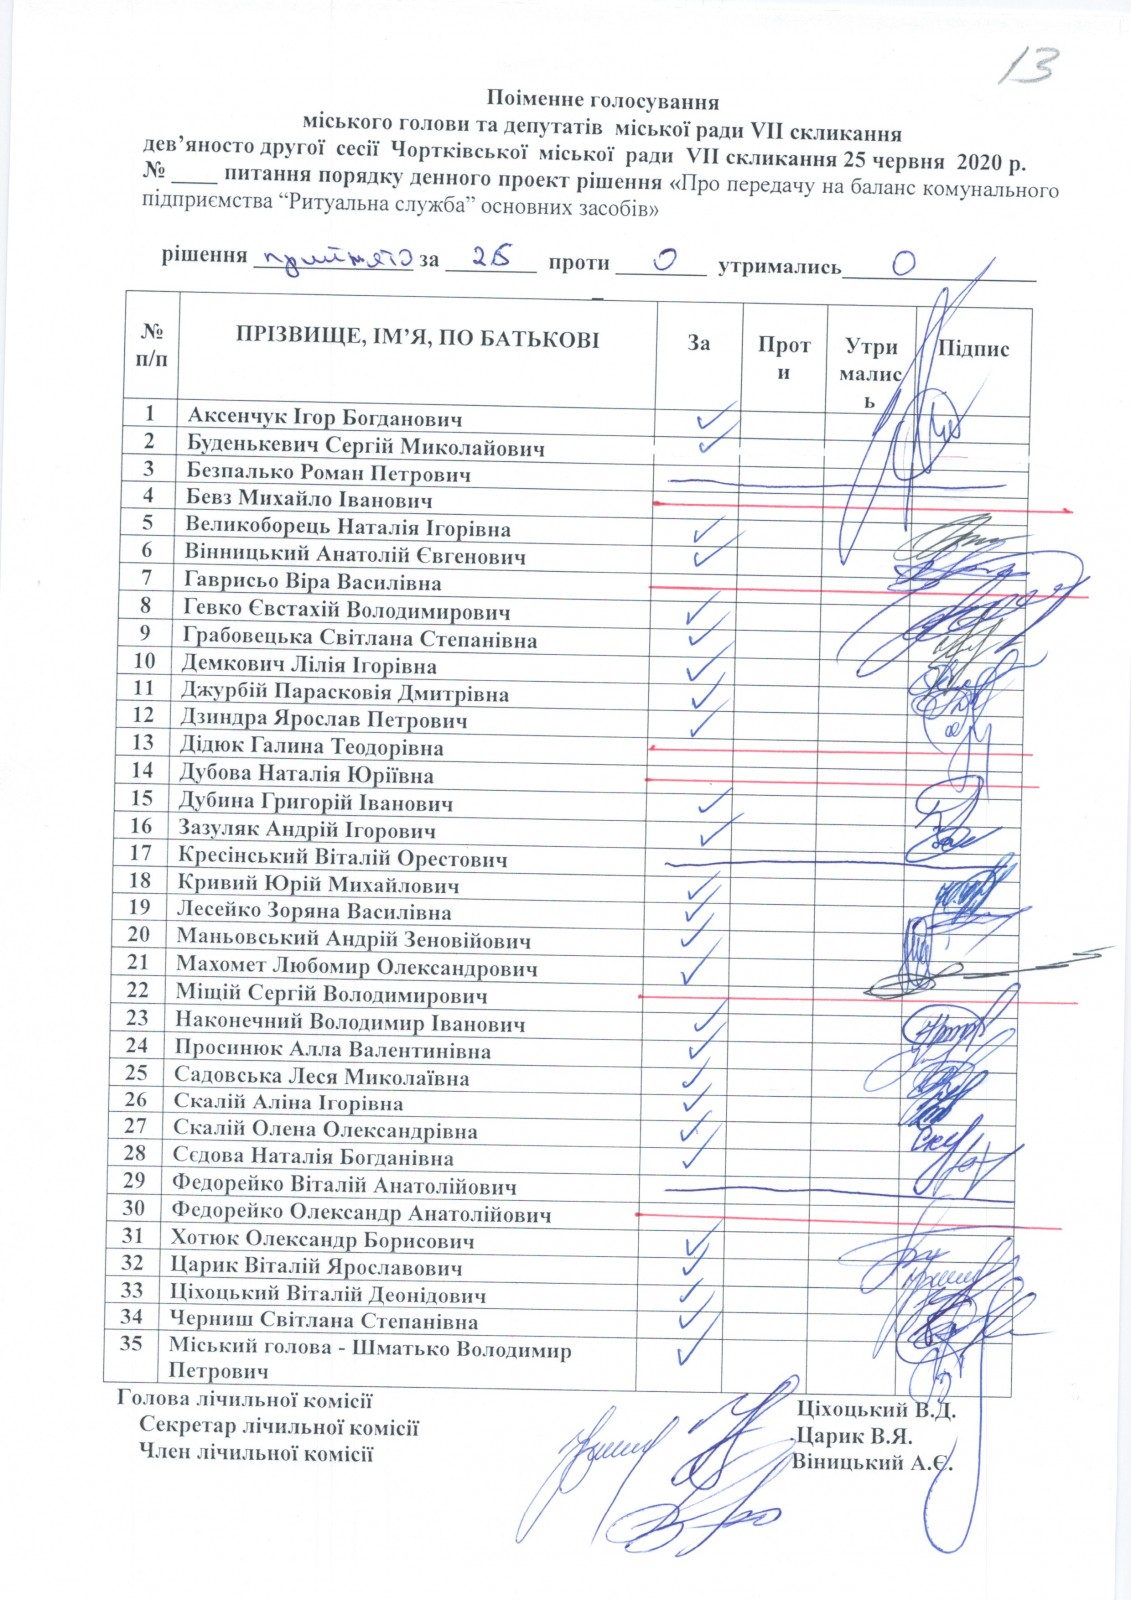 13
Поіменне голосування
міського голови та депутатів міської ради VII скликання
дев’яносто другої сесії Чортківської міської ради VII скликання 25 червня 2020 р.
№ ____ питання порядку денного проект рішення «Про передачу на баланс комунального
підприємства “Ритуальна служба” основних засобів»
рішення прийнято за 26 проти 0 утримались 0
№ п/п ПРІЗВИЩЕ, ІМ’Я, ПО БАТЬКОВІ За Проти Утрималися Підпис
1 Аксенчук Ігор Богданович ✓
2 Буденькевич Сергій Миколайович ✓
3 Безпалько Роман Петрович
4 Бевз Михайло Іванович
5 Великоборець Наталія Ігорівна ✓
6 Вінницький Анатолій Євгенович ✓
7 Гаврисьо Віра Василівна
8 Гевко Євстахій Володимирович ✓
9 Грабовецька Світлана Степанівна ✓
10 Демкович Лілія Ігорівна ✓
11 Джурбій Парасковія Дмитрівна ✓
12 Дзиндра Ярослав Петрович ✓
13 Дідюк Галина Теодорівна
14 Дубова Наталія Юріївна
15 Дубина Григорій Іванович ✓
16 Зазуляк Андрій Ігорович ✓
17 Кресінський Віталій Орестович
18 Кривий Юрій Михайлович ✓
19 Лесейко Зоряна Василівна ✓
20 Маньовський Андрій Зеновійович ✓
21 Махомет Любомир Олександрович ✓
22 Міщій Сергій Володимирович
23 Наконечний Володимир Іванович ✓
24 Просинюк Алла Валентинівна ✓
25 Садовська Леся Миколаївна ✓
26 Скалій Аліна Ігорівна ✓
27 Скалій Олена Олександрівна ✓
28 Сєдова Наталія Богданівна ✓
29 Федорейко Віталій Анатолійович
30 Федорейко Олександр Анатолійович
31 Хотюк Олександр Борисович ✓
32 Царик Віталій Ярославович ✓
33 Ціхоцький Віталій Деонідович ✓
34 Черниш Світлана Степанівна ✓
35 Міський голова - Шматько Володимир ✓
Петрович
Голова лічильної комісії Ціхоцький В.Д.
Секретар лічильної комісії Царик В.Я.
Член лічильної комісії Віницький А.Є.